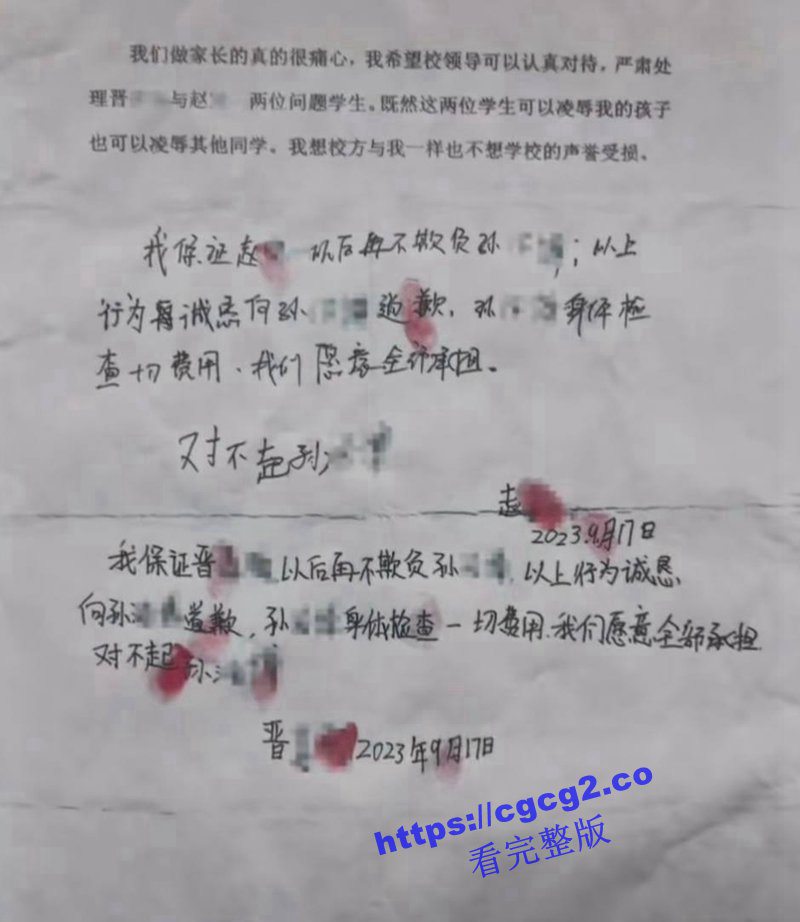 我们做家长的真的很痛心，我希望校领导可以认真对待，严肃处
理晋 与赵 两位问题学生。既然这两位学生可以凌辱我的孩子
也可以凌辱其他同学。我想校方与我一样也不想学校的声誉受损。
我保证赵 以后再不欺负孙 ；以上
行为再诚恳向孙 道歉，孙 身体检
查一切费用、我们愿意全部承担。
对不起孙
赵
2023.9月17日
我保证晋 以后再不欺负孙 ，以上行为诚恳
向孙 道歉，孙 身体检查一切费用.我们愿意全部承担.
对不起孙
晋 2023年9月17日
https://cgcg2.co
看完整版